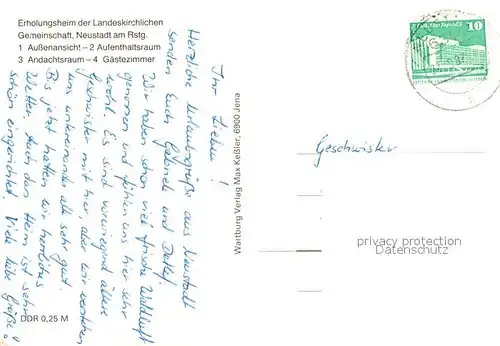 Erholungsheim der Landeskirchlichen
Gemeinschaft, Neustadt am Rstg.
1 Außenansicht – 2 Aufenthaltsraum
3 Andachtsraum – 4 Gästezimmer
Ihr Lieben!
Herzliche Urlaubsgrüße aus Neustadt
senden Euch Gabriele und Detlef.
Wir haben schon viel frische Waldluft
genommen und fühlen uns hier sehr
wohl. Es sind vorwiegend ältere
Geschwister mit hier, aber wir verstehen
uns untereinander alle sehr gut.
Bis jetzt hatten wir herrliches
Wetter. Auch das Heim ist sehr
schön eingerichtet. Viele liebe Grüße!
DDR 0,25 M
Wartburg Verlag Max Keßler, 6900 Jena
10
Geschwister
privacy protection
Datenschutz